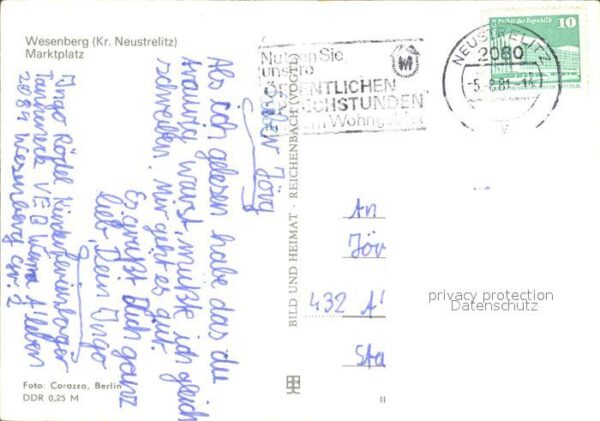 Wesenberg (Kr. Neustrelitz)
Marktplatz
Nutzen Sie
unsere
ÖFFENTLICHEN
SPRECHSTUNDEN
im Wohngebiet
NEUSTRELITZ
2080
-5.-8.81.-14
10
Lieber Jörg
Als ich gelesen habe das du
traurig warst, mußte ich gleich
schreiben. Mir geht es gut.
Es grüßt Dich ganz
lieb, Dein Ingo
Ingo Rödel Kinderferienlager
VEB Wema A'leben
2084 Wesenberg Gr. 2
BILD UND HEIMAT · REICHENBACH (VOGTL)
An
Jör
432 A'
Sta
privacy protection
Datenschutz
Foto: Corazza, Berlin
DDR 0,25 M
II